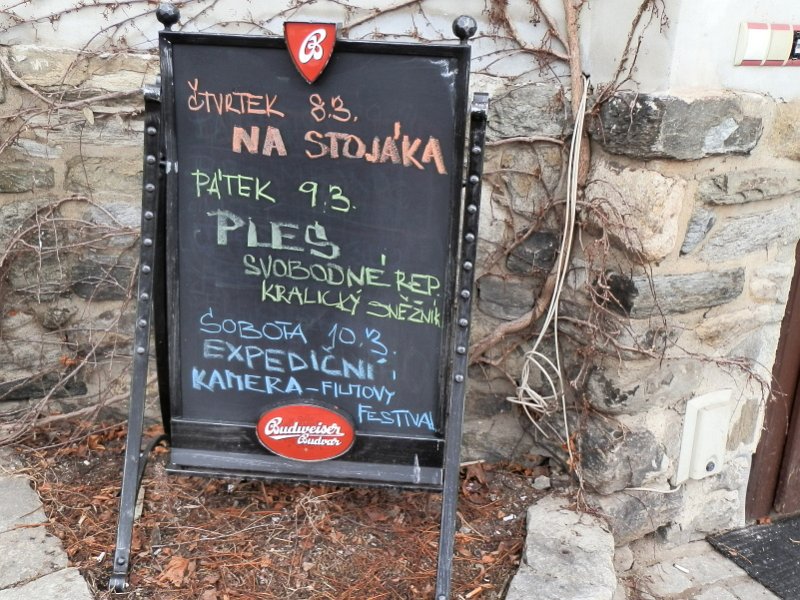 B
ČTVRTEK 8.3.
NA STOJÁKA
PÁTEK 9.3.
PLES
SVOBODNÉ REP.
KRALICKÝ SNĚŽNÍK
SOBOTA 10.3.
EXPEDIČNÍ
KAMERA – FILMOVÝ
FESTIVAL
Budweiser
Budvar